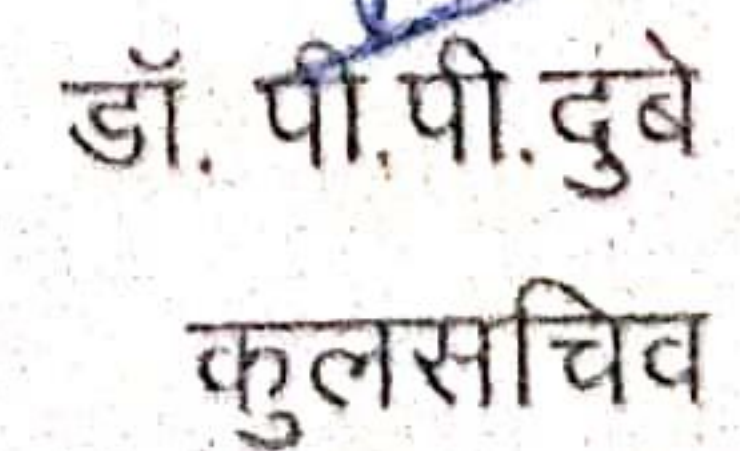 डॉ. पी.पी.दुबे
कुलसचिव